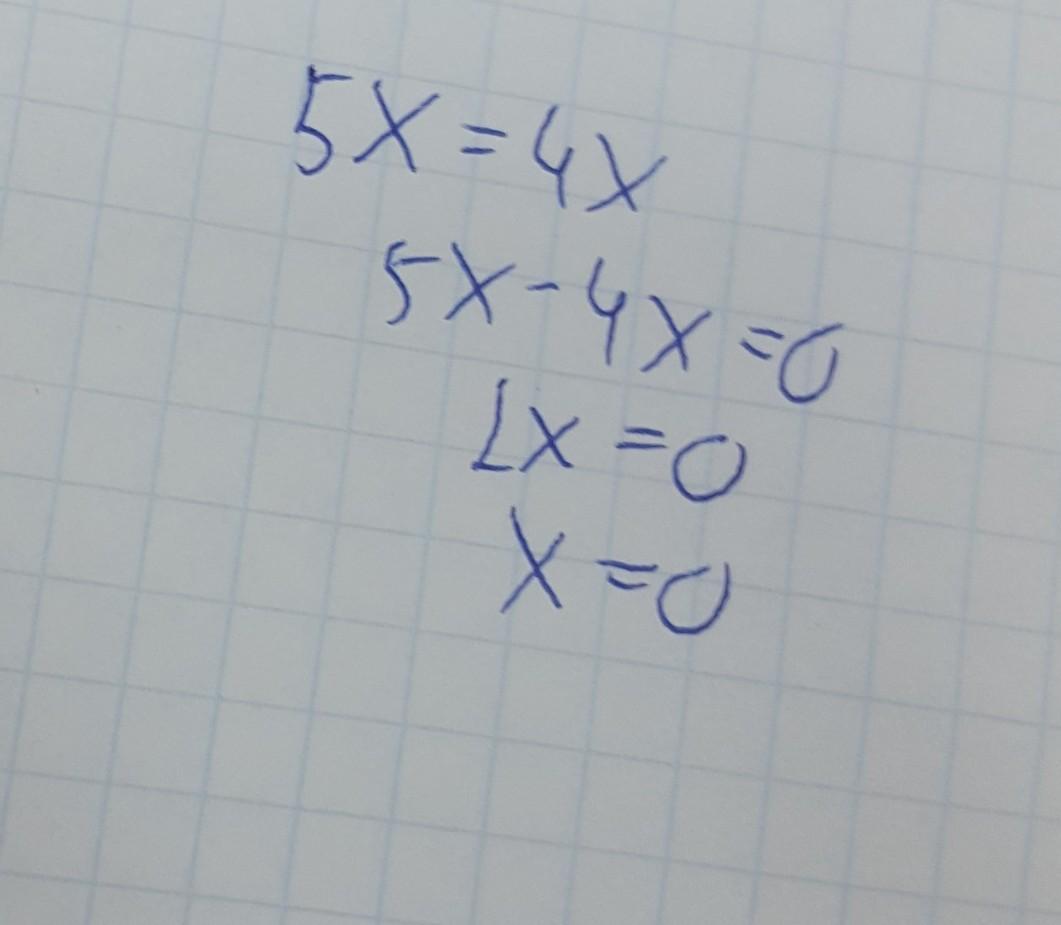 5X=4X
5X-4X=0
1X=0
X=0